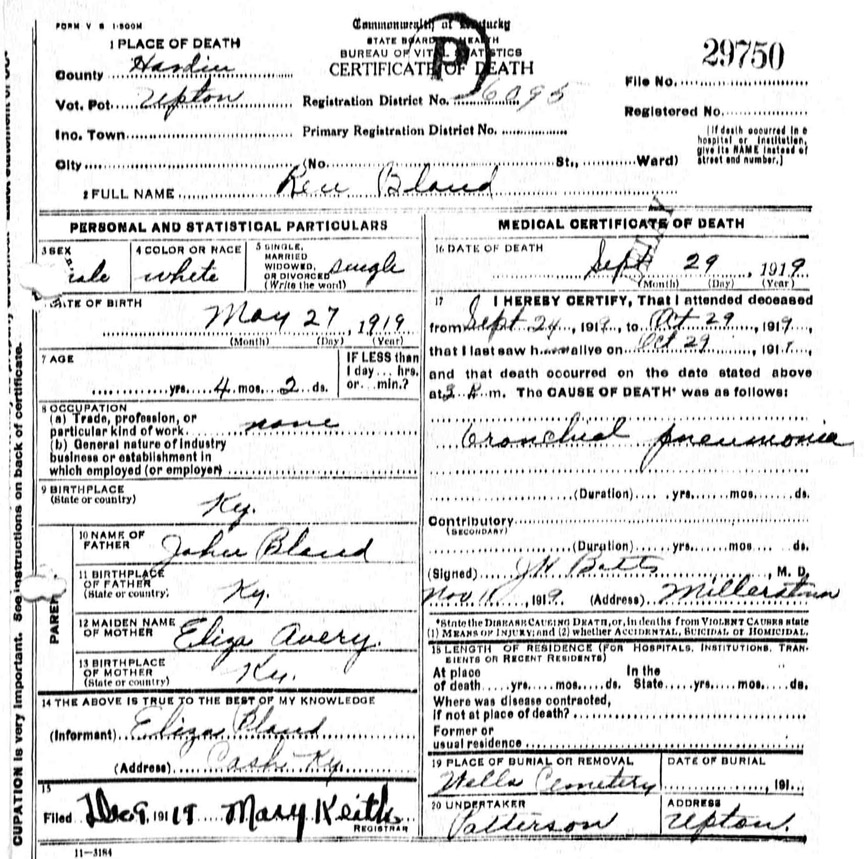 FORM V S 1-500M
Commonwealth of Kentucky
STATE BOARD OF HEALTH
BUREAU OF VITAL STATISTICS
CERTIFICATE OF DEATH
P
29750
1 PLACE OF DEATH
County Hardin
Vot. Pct. Upton
Inc. Town
City (No. St., Ward)
Registration District No. 6095
Primary Registration District No.
File No.
Registered No.
[If death occurred in a hospital or institution, give its NAME instead of street and number.]
2 FULL NAME Bland
PERSONAL AND STATISTICAL PARTICULARS
3 SEX
4 COLOR OR RACE white
5 SINGLE, MARRIED WIDOWED, OR DIVORCED (Write the word) single
DATE OF BIRTH
May 27, 1919
(Month) (Day) (Year)
7 AGE
yrs. 4 mos. 2 ds.
IF LESS than 1 day hrs. or min.?
8 OCCUPATION
(a) Trade, profession, or particular kind of work none
(b) General nature of industry
business or establishment in
which employed (or employer)
9 BIRTHPLACE
(State or country) Ky.
PAREN
10 NAME OF FATHER John Bland
11 BIRTHPLACE OF FATHER (State or country) Ky.
12 MAIDEN NAME OF MOTHER Eliza Avery.
13 BIRTHPLACE OF MOTHER (State or country) Ky.
14 THE ABOVE IS TRUE TO THE BEST OF MY KNOWLEDGE
(Informant) Eliza Bland
(Address) Ky.
15
Filed Dec 9, 1919 Mary Keith
REGISTRAR
11-3184
MEDICAL CERTIFICATE OF DEATH
16 DATE OF DEATH
Sept 29, 1919
(Month) (Day) (Year)
17 I HEREBY CERTIFY, That I attended deceased
from Sept 24, 1919, to Oct 29, 1919,
that I last saw h alive on Oct 29, 191
and that death occurred on the date stated above
at m. The CAUSE OF DEATH* was as follows:
bronchial pneumonia
(Duration) yrs. mos. ds.
Contributory
(SECONDARY)
(Duration) yrs. mos ds.
(Signed) M. D.
Nov 11, 1919 (Address) Millerstown
*State the DISEASE CAUSING DEATH, or, in deaths from VIOLENT CAUSES state
(1) MEANS OF INJURY; and (2) whether ACCIDENTAL, SUICIDAL OR HOMICIDAL.
18 LENGTH OF RESIDENCE (FOR HOSPITALS, INSTITUTIONS, TRAN-
SIENTS OR RECENT RESIDENTS)
At place of death yrs. mos. ds. In the State yrs. mos. ds.
Where was disease contracted,
if not at place of death?
Former or
usual residence
19 PLACE OF BURIAL OR REMOVAL
Wells Cemetery
DATE OF BURIAL
, 191
20 UNDERTAKER
Patterson
ADDRESS
Upton.
CUPATION is very important. See instructions on back of certificate.